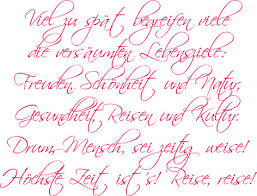 Viel zu spät begreifen viele
die versäumten Lebensziele:
Freuden, Schönheit und Natur,
Gesundheit, Reisen und Kultur.
Drum, Mensch, sei zeitig weise!
Höchste Zeit ist's! Reise, reise!